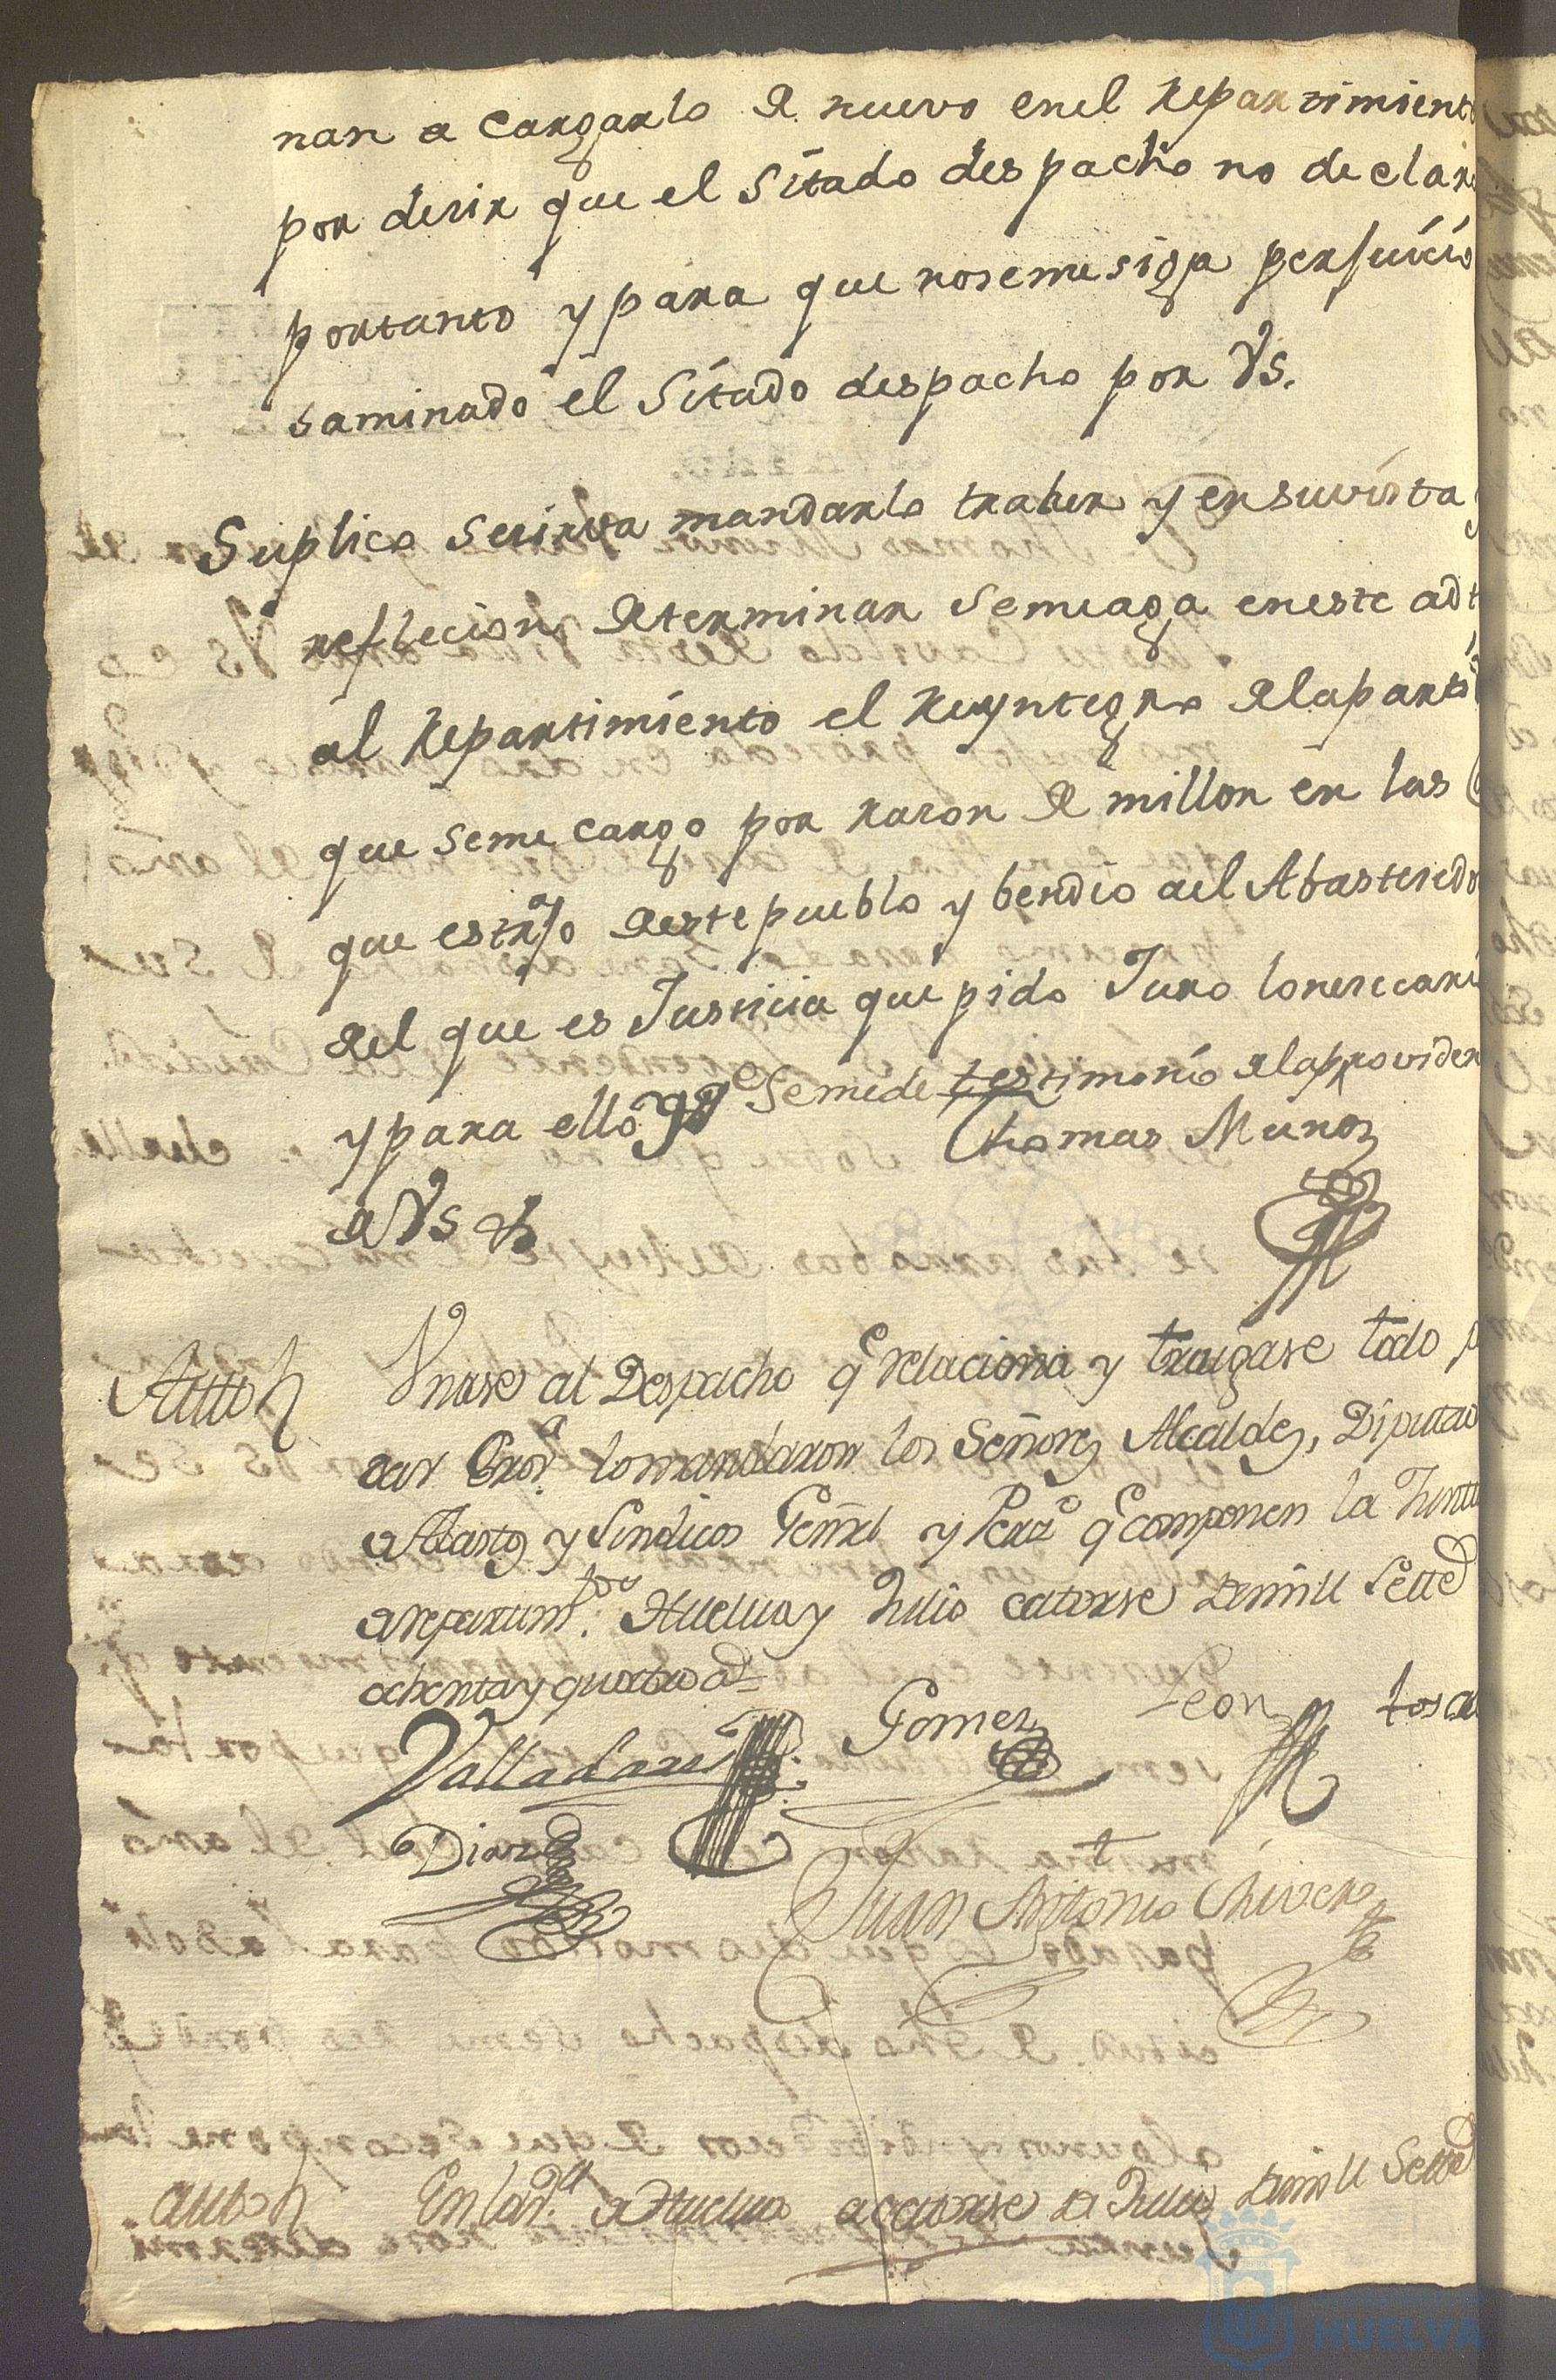 nan a Cargarlo de nuevo enel Repartimiento
por desir que el Sitado despacho no declar
portanto y para que nosemesiga perjuicio
saminado el Sitado despacho por VS.
Suplico Seirva mandarlo traher y ensuvista
reflecion determinar Semeaga eneste
al Repartimiento el Reyntegro delapart
que Seme cargo por Rason de millon en las
que estrajo deeste pueblo y bendio ael Abastesedo
del que es Justicia que pido Juro lonesecari
y para ello y qe Semede testimonio delaprouiden
a VS &
Thomas Muñoz
Autto
Vnase al Despacho qe relaciona y traigase todo p
dar Prova. lomandaron los Señores Alcaldes, Diputado
de Abastos y Sindicos Genrl y Perso qe componen la Junta
de repartimtos. de Huelva y Julio catorse demill Setted
ochenta y quatro as
Valladares
Gomez
Leon
tosca
Diaz
Juan Antonio Chivero
Auto
En lad. Va de Huelva a catorse de Julio demill Setted
HUELVA